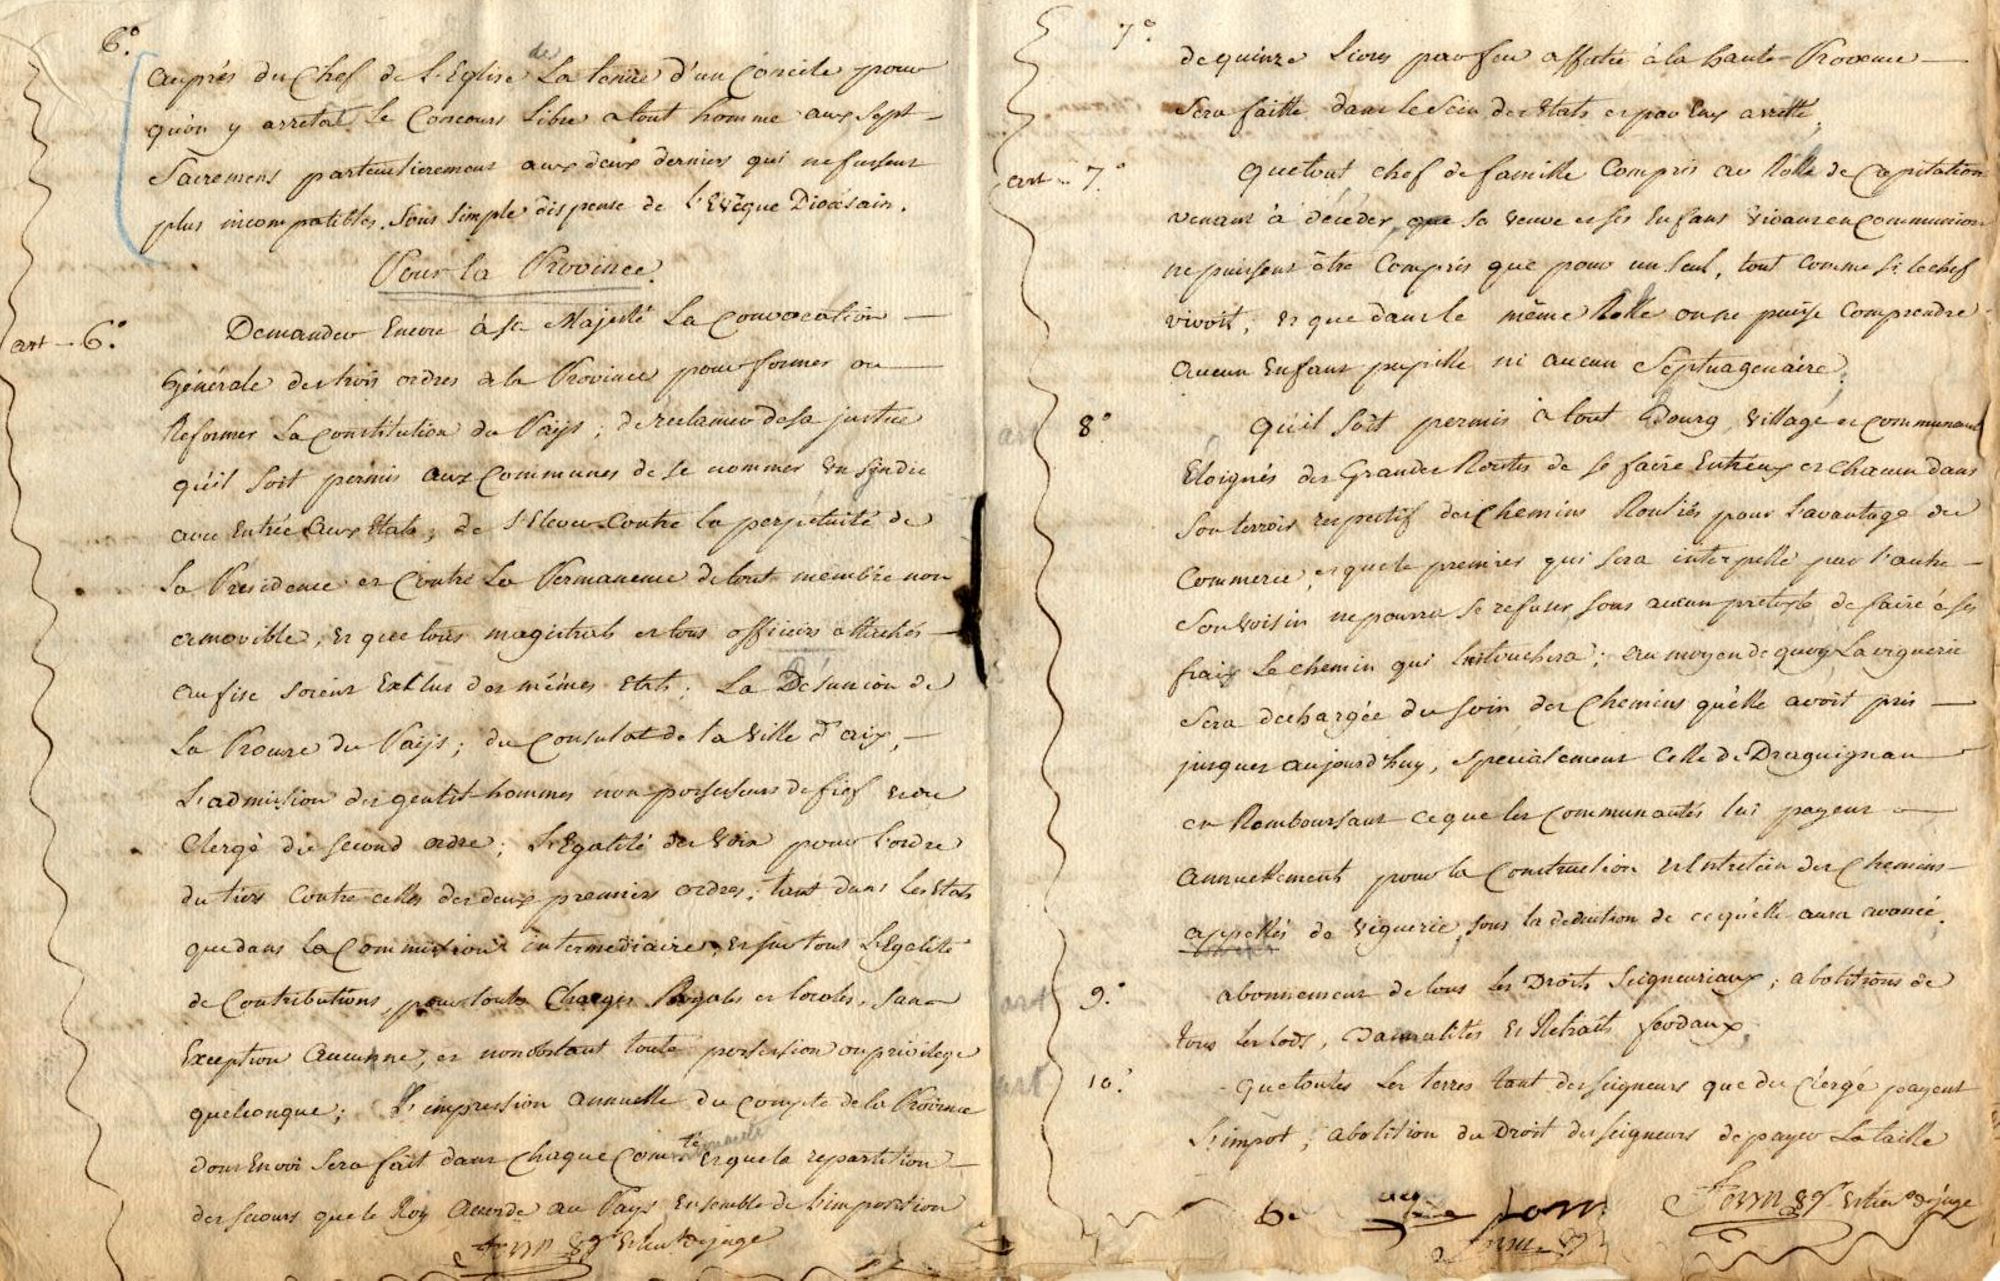 6.°
auprés du chef de L'Eglise de La tenue d'un Concile pour
qu'on y arretat Le Concours Libre a tout homme aux sept
Sacremens particulierement aux deux derniers qui ne fussent
plus incompatibles sous simple dispense de L'Evêque Diocésain.
Pour la Province.
art - 6.°
Demander Encore à Sa Majesté La Convocation
Générale des trois ordres de la Province pour former ou
Reformer La Constitution du Païs ; de reclamer de sa justice
qu'il soit permis aux Communes de se nommer un sindic
avec Entrée aux Etats ; de S'Elever Contre la perpetuité de
La Presidence et Contre La Permanence de tout membre non
amovible, et que tous magistrats et tous officiers attachés
au fisc soient Exclus des mêmes Etats ; La Désunion de
La Procure du Païs ; du Consulat de la Ville d'aix,
L'admission des gentils-hommes non possesseurs de fief et du
Clergé du second ordre ; L'Egalité des Voix pour L'ordre
du tiers Contre celles des deux premiers ordres ; tant dans Les Etats
que dans La Commission intermediaire, et sur tout L'Egalité
de Contributions, pour toutes Charges Royales et locales, sans
Exception aucunne, et nonobstant toute possession ou privilege
quelconque ; L'impression annuelle du Compte de la Province
dont Envoi sera fait dans chaque Com.té et que la repartition
des secours que le Roy accorde au Pays Ensemble de L'imposition
7°
de quinze Livres par feu affectée à la haute-Provence
sera faitte dans le Sein des Etats et par Eux arretté.
art - 7.°
Que tout chef de famille Compris au Rolle de Capitation
venant à décéder, que sa veuve et ses Enfans vivans en communion
ne puissent être Compris que pour un seul, tout comme si le chef
vivoit, et que dans le même Rolle on ne puisse Comprendre
aucun Enfant pupille ni aucun Septuagenaire.
art 8°
Qu'il soit permis à tout Bourg, village et communauté
Eloignés des Grandes Routes de se faire Entr'eux et chacun dans
son terroir respectif des Chemins Rouliés pour L'avantage du
Commerce, et que le premier qui sera interpellé par L'autre
son voisin ne pourra se refuser sous aucun pretexte de faire à ses
fraix Le chemin qui Le touchera ; au moyen de quoy La viguerie
sera dechargée du soin des Chemins qu'elle avoit pris
jusques aujourd'huy, specialement Celle de Draguignan
en Remboursant ce que les Communautés lui payent
annuellement pour la Construction et Entretien des Chemins
appellés de Viguerie, sous la deduction de ce qu'elle aura avancé.
art 9.°
abonnement de tous Les Droits Seigneuriaux ; abolitions de
tous Les Lods, Bannalités Et Retraits feodaux,
art 10.°
Que toutes Les terres tant des seigneurs que du Clergé payent
L'impôt ; abolition du Droit des seigneurs de payer La taille